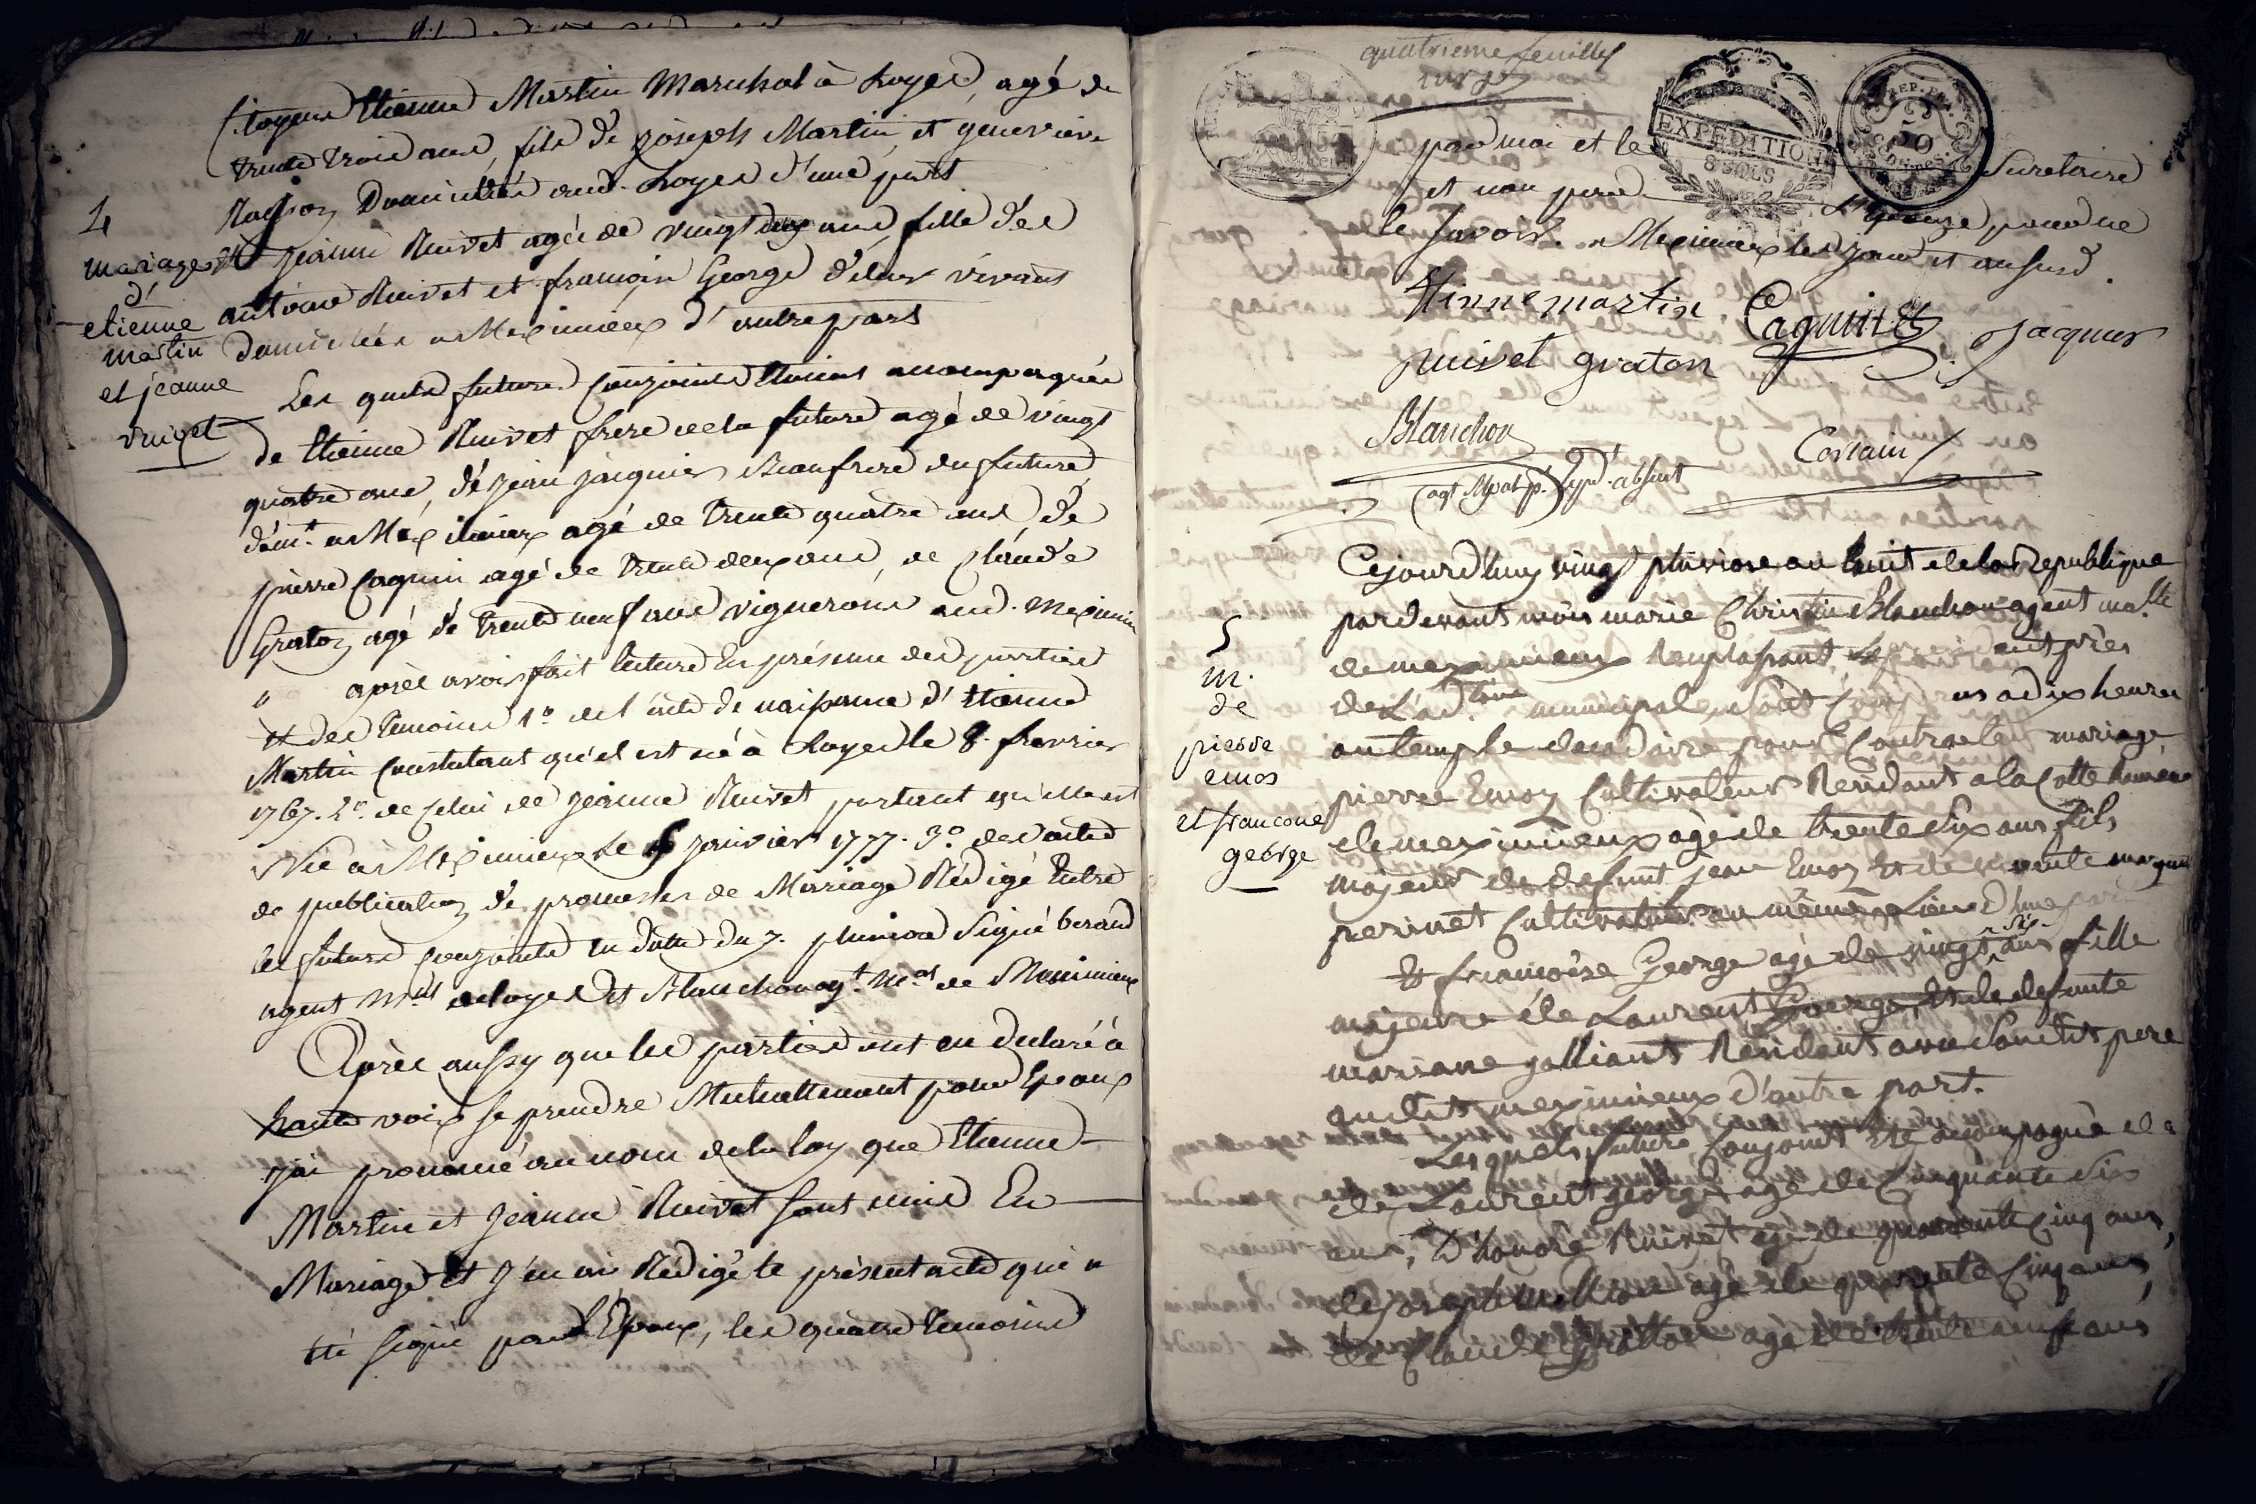 Citoyens Etienne Martin Marechal à Loyes, agé de
trente trois ans, fils de joseph Martin, et genevieve
Domiciliés aud. Loyes d'une part
4
mariage
d'
etienne
martin
et jeanne
ruivet
Et jeanne Ruivet agée de vingt deux ans, fille d'es
antoine Ruivet et françoise George d'eleur vivant
domiciliés a Meximieux d'autre part
Les quels futurs Conjoints etoient accompagnés
de Etienne Ruivet frere de la future agé de vingt
quatre ans, de jean jacquier Beaufrere du futur
dem.t a Meximieux agé de trente quatre ans, de
pierre Caguin agé de trente deux ans, de Claude
Graton agé de trente neuf ans vignerons aud. Meximieux
après avoir fait lecture En présence des parties
et des temoins 1º de l'acte de naissance d'Etienne
Martin Constatant qu'il est né à Loyes le 8. fevrier
1767. 2º. de Celui de jeanne Ruivet portant qu'elle est
Née à Meximieux le janvier 1777. 3º. des actes
de publication de promesses de Mariage Rédigé Entre
les futurs Conjoints en datte du 7. pluviose Signé berard
agent M.al de loyes et Blanchon ag.t M.al de Meximieux
Après aussy que les parties ont eu declaré à
haute voix se prendre Mutuellement pour Epoux
j'ai prononcé au nom de la loy que Etienne
Martin et jeanne Ruivet sont unis En
Mariage Et j'en ai Rédigé le présent acte qui a
eté signé par l'Epoux, les quatre temoins
quatrieme feuillet
EXPEDITION
8 SOLS
REP. FRA.
50
Centimes
par moi et le Secretaire
et non par l'Epouse, pour ne
le savoir. a Meximieux les jour et an susd.
Etinne martin Caguin jacquier
ruivet graton
Blanchon
(agt Mpal p. le pd.t absent
Cejourd'huy vingt pluviose an huit de la Republique
pardevant mois marie Christin Blanchon agent m.al
de meximieux Remplaçant le president près
de L'ad.tion municipale, Sont Comparus a dix heures
au temple decadaire pour Contracter mariage
5
m.
de
pierre
emos
et francoise
george
pierre Emoz Cultivateur Residant a la Cotte
de meximieux agé de trente six ans fils
majeur de defunt jean Emoz Et de vivante
perinet Cultivateur au même Lieu d'une part
Et françoise George agé de vingt six ans fille
majeure de Laurent George, Et de defunte
mariane galliant Residant avec Son dit pere
au dit meximieux d'autre part.
Les quels futurs Conjoints Eté accompagné de
de Laurent george agé de Cinquante six
ans, d'honoré Ruivet agé de quarante Cinq ans,
de joseph agé de quarante Cinq ans,
de Claude Gratton agé de trente neuf ans